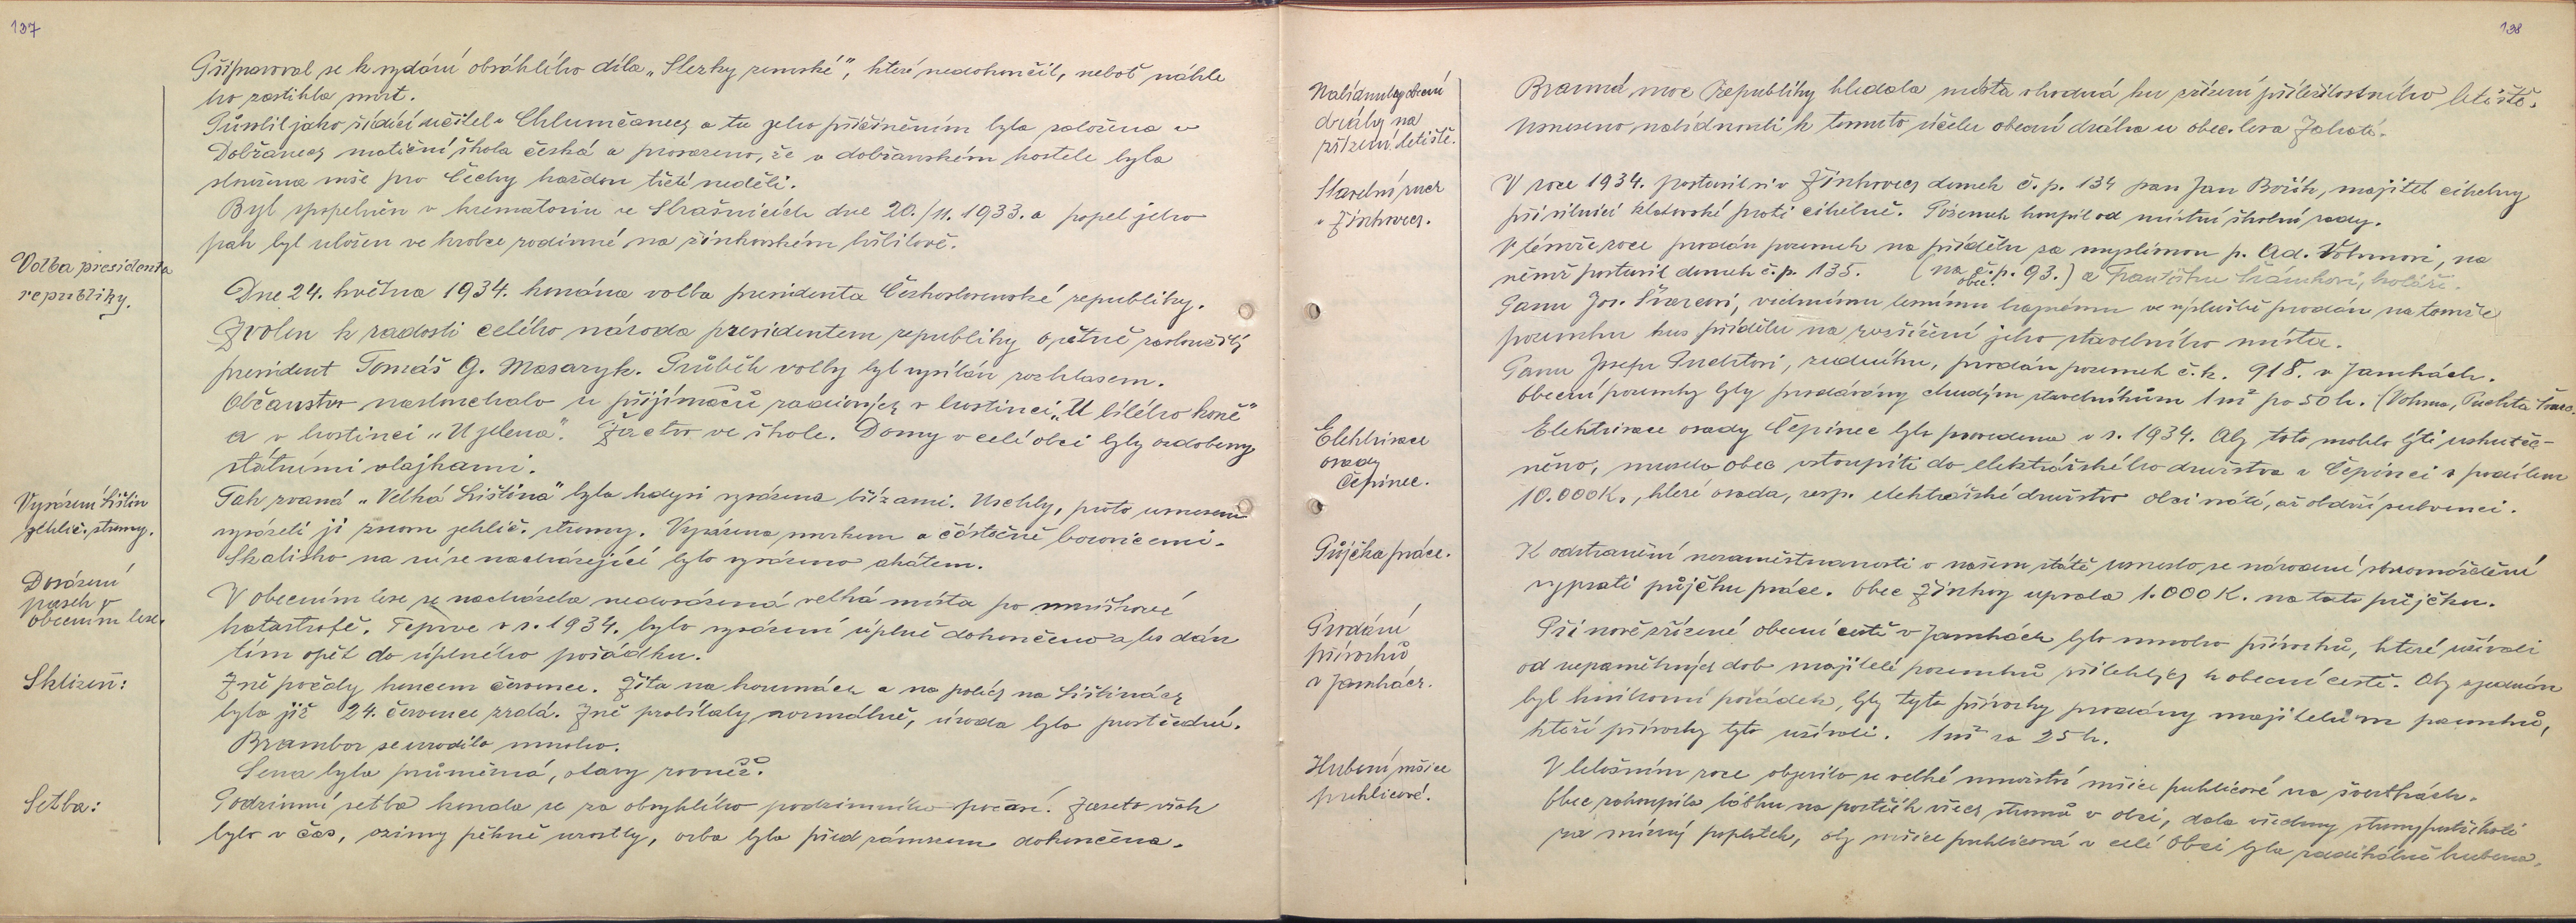 137
Připravoval se k vydání obsáhlého díla „Stezky zemské", které nedokončil, neboť náhle
ho zastihla smrt.
Působil jako řídící učitel v Chlumčanech a tu jeho přičiněním byla založena v
Dobřanech matiční škola česká a prosazeno, že v dobřanském kostele byla
sloužena mše pro Čechy každou třetí neděli.
Byl zpopelněn v krematoriu ve Strašnicích dne 20./11. 1933. a popel jeho
pak byl uložen ve hrobce rodinné na žinkovském hřbitově.
Volba presidenta
republiky.
Dne 24. května 1934. konána volba presidenta Československé republiky.
Zvolen k radosti celého národa presidentem republiky opětně zasloužilý
president Tomáš G. Masaryk. Průběh volby byl vysílán rozhlasem.
Občanstvo naslouchalo u přijímačů radiových v hostinci „U bílého koně"
a v hostinci „U jelena". Žactvo ve škole. Domy v celé obci byly ozdobeny
státními vlajkami.
Vysázení Lištin
jehlič. stromy.
Tak zvaná „Velká Liština" byla kdysi vysázena břízami. Uschly, proto usneseno
vysázeti ji znovu jehlič. stromy. Vysázena smrkem a částečně borovicemi.
Skalisko na ní se nacházející bylo vysázeno akátem.
Dosázení
pasek v
obecním lese.
V obecním lese se nacházela nedosázená velká místa po mniškové
katastrofě. Teprve v r. 1934. bylo vysázení úplně dokončeno a les dán
tím opět do úplného pořádku.
Sklizeň:
Žně počaly koncem července. Žita na kounách a na polích na Lištinách
byla již 24. července zralá. Žně probíhaly normálně, úroda byla prostřední.
Brambor se urodilo mnoho.
Sena byla průměrná, otavy rovněž.
Setba:
Podzimní setba konala se za obvyklého podzimního počasí. Zaseto však
bylo v čas, ozimy pěkně vzrostly, orba byla před zámrzem dokončena.
138
Nabídnutí obecní
dráhy na
zřízení letiště.
Branná moc Republiky hledala místa vhodná ku zřízení příležitostného letiště.
Usneseno nabídnouti k tomuto účelu obecní dráha u obec. lesa Zahatí.
Stavební ruch
v Žinkovech.
V roce 1934. postavil si v Žinkovech domek č. p. 134 pan Jan Bořík, majitel cihelny
při silnici klatovské proti cihelně. Pozemek koupil od místní školní rady.
V témže roce prodán pozemek na přídělu za myslivnou p. Ad. Vohnovi, na
němž postavil domek č. p. 135. (na č. p. 93.) a Františku Šrámkovi, koláři.
obec.
Panu Jos. Švarcovi, vrchnímu lesnímu hajnému ve výslužbě prodán na tomže
pozemku kus přídělu na rozšíření jeho stavebního místa.
Panu Josefu Puchtovi, zedníku, prodán pozemek č. k. 918. v Jamkách.
Obecní pozemky byly prodávány chudým stavebníkům 1 m² po 50 h. (Vohna, Puchta Švarc.
Elektrisace
osady
Čepinec.
Elektrisace osady Čepinec byla provedena v r. 1934. Aby toto mohlo býti uskuteč-
něno, musela obec vstoupiti do elektrářského družstva v Čepinci s podílem
10.000 K., které osada, resp. elektrářské družstvo obci vrátí, až obdrží subvenci.
Půjčka práce.
K odstranění nezaměstnanosti v našem státě usneslo se národní shromáždění
vypsati půjčku práce. Obec Žinkovy upsala 1.000 K. na tuto půjčku.
Prodání
přívozků
v Jamkách.
Při nově zřízené obecní cestě v Jamkách bylo mnoho přívozků, které užívali
od nepamětných dob majitelé pozemků přilehlých k obecní cestě. Aby zjednán
byl knihovní pořádek, byly tyto přívozky prodány majitelům pozemků,
kteří přívozky tyto užívali. 1 m² za 25 h.
Hubení mšice
puklicové.
V letošním roce objevilo se velké množství mšice puklicové na švestkách.
Obec zakoupila látku na postřik všech stromů v obci, dala všechny stromy postříkati
za mírný poplatek, aby mšice puklicová v celé obci byla radikálně hubena.